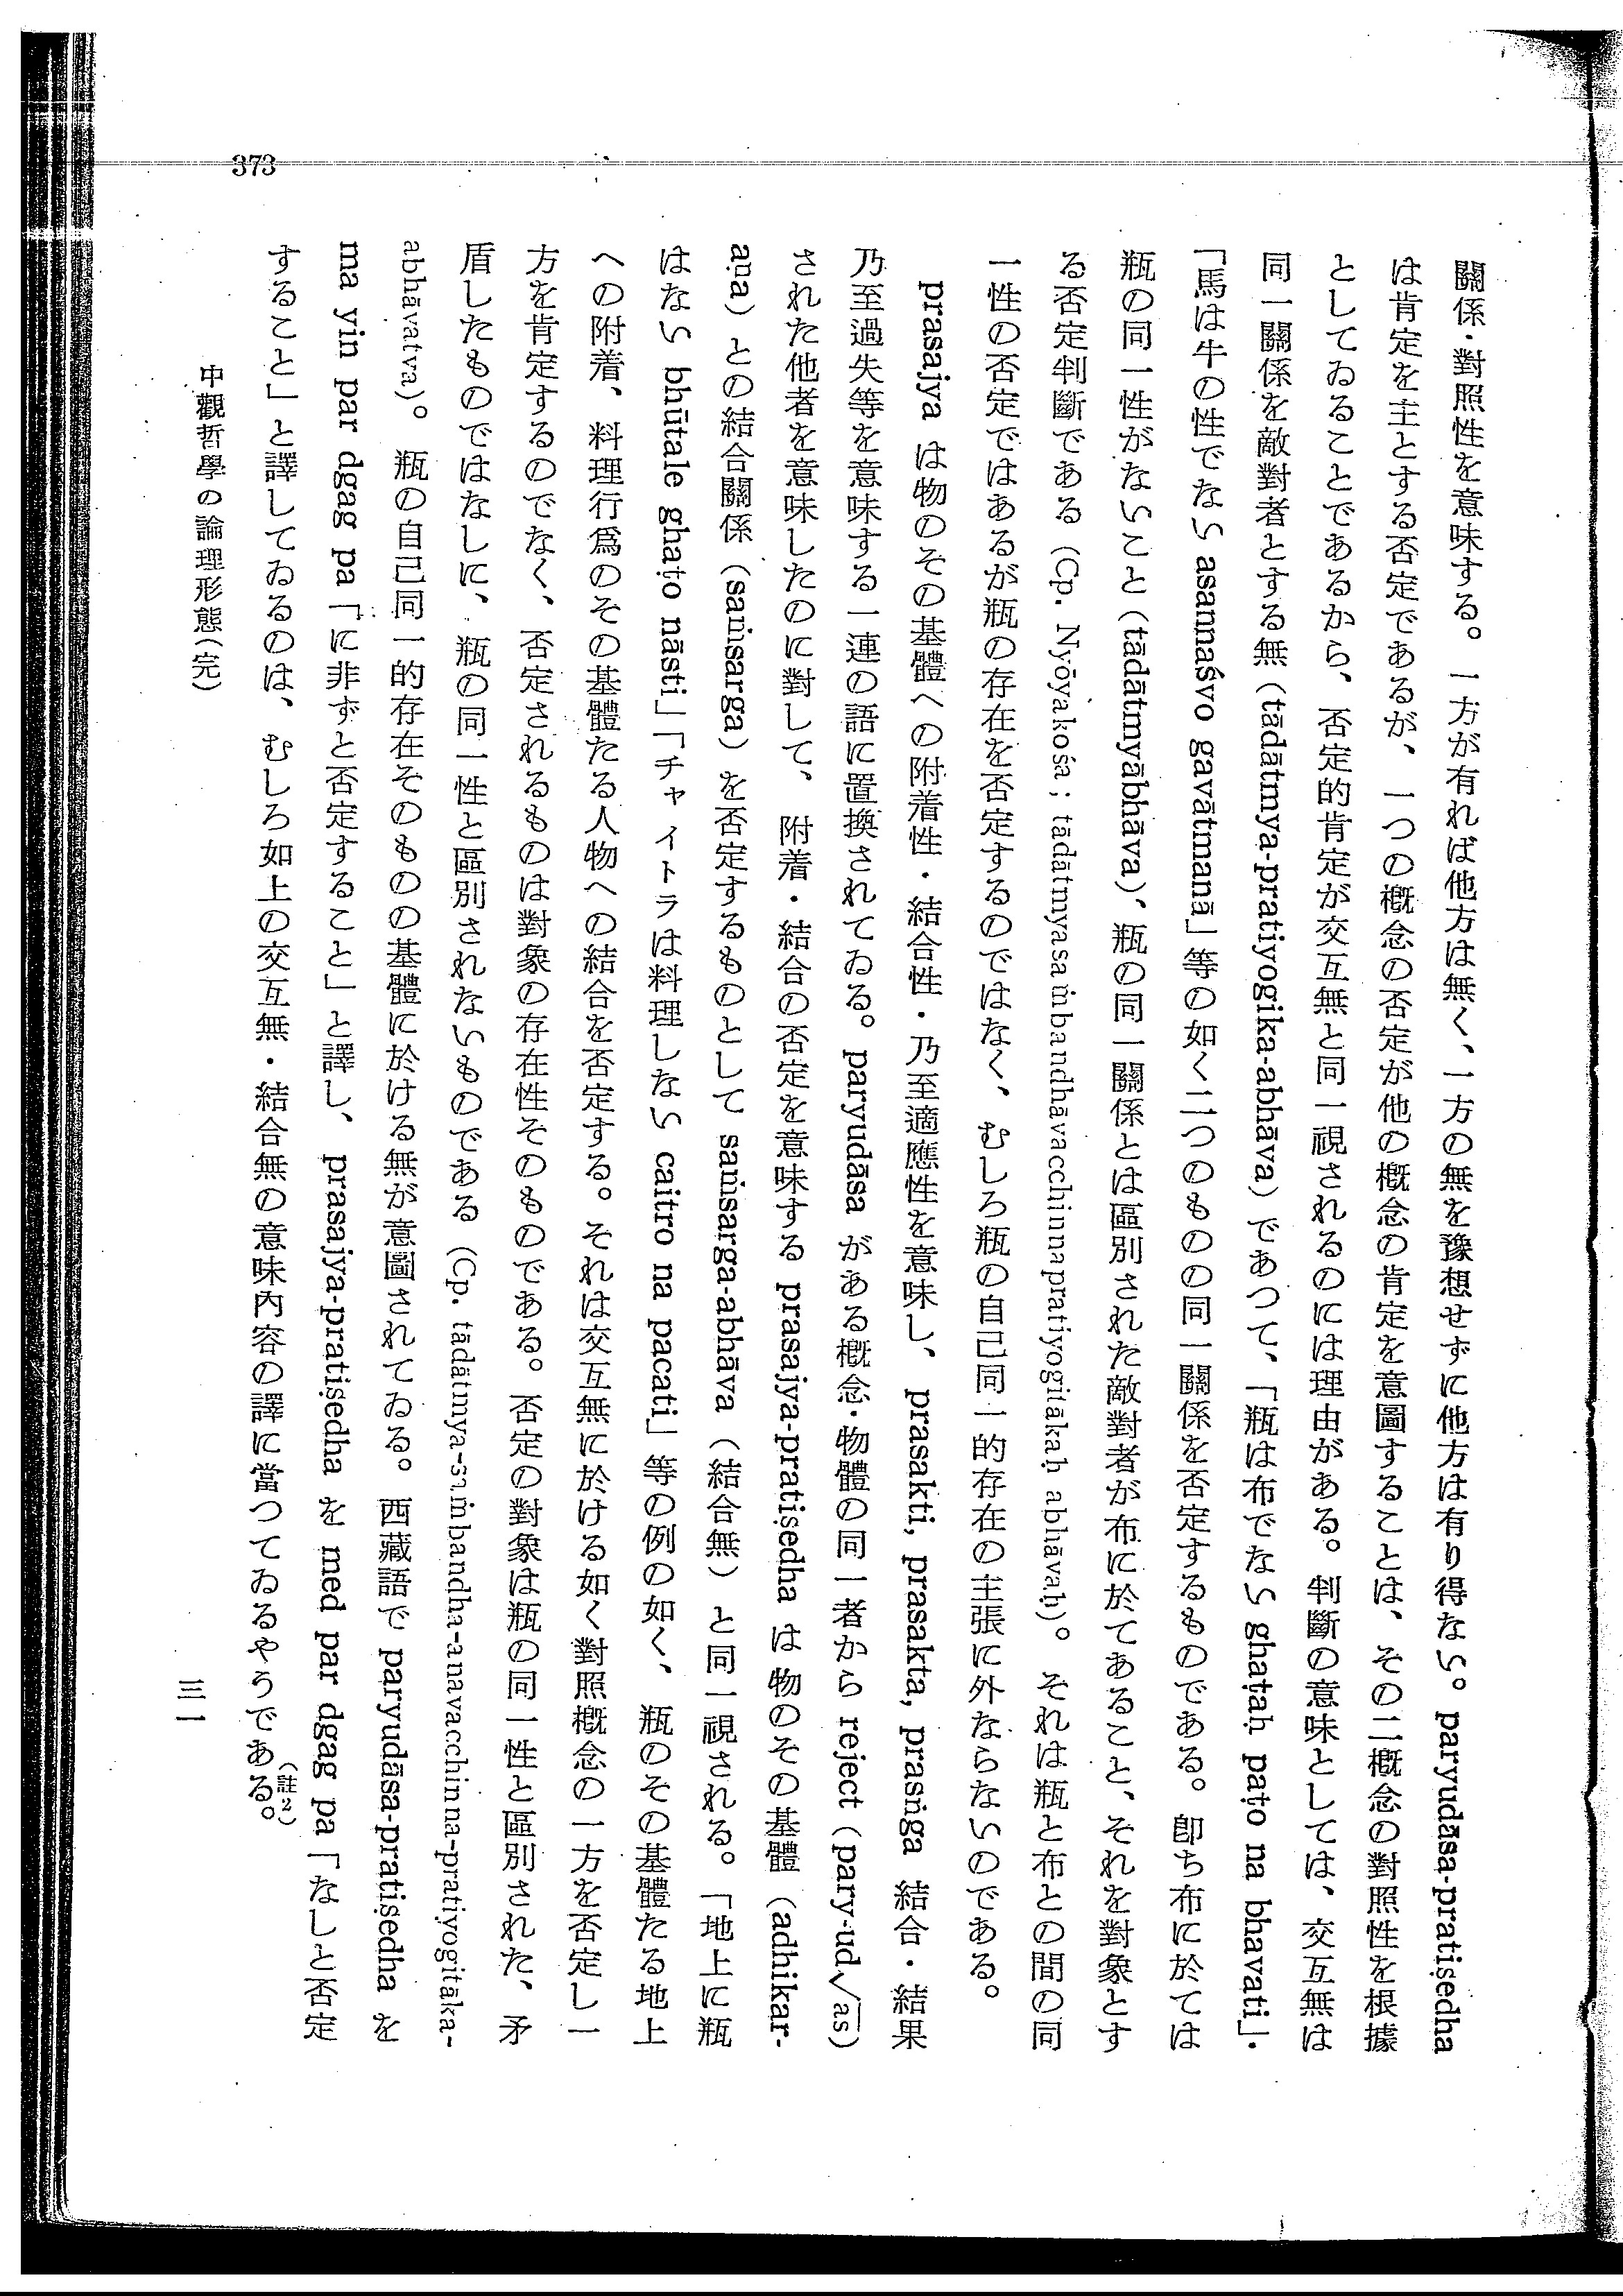 關係・對照性を意味する。一方が有れば他方は無く、一方の無を豫想せずに他方は有り得ない。paryudāsa-pratiṣedha
は肯定を主とする否定であるが、一つの概念の否定が他の概念の肯定を意圖することは、その二概念の對照性を根據
としてゐることであるから、否定的肯定が交互無と同一視されるのには理由がある。判斷の意味としては、交互無は
同一關係を敵對者とする無（tādātmya-pratiyogika-abhāva）であつて、「瓶は布でない ghaṭaḥ paṭo na bhavati」・
「馬は牛の性でない asannaśvo gavātmanā」等の如く二つのものの同一關係を否定するものである。卽ち布に於ては
瓶の同一性がないこと（tādātmyābhāva）、瓶の同一關係とは區別された敵對者が布に於てあること、それを對象とす
る否定判斷である（Cp. Nyōyakośa ; tādātmyasaṁbandhāvacchinnapratiyogitākaḥ abhāvaḥ）。それは瓶と布との間の同
一性の否定ではあるが瓶の存在を否定するのではなく、むしろ瓶の自己同一的存在の主張に外ならないのである。
prasajya は物のその基體への附着性・結合性・乃至適應性を意味し、prasakti, prasakta, prasṅga 結合・結果
乃至過失等を意味する一連の語に置換されてゐる。paryudāsa がある概念・物體の同一者から reject（pary-ud√as）
された他者を意味したのに對して、附着・結合の否定を意味する prasajya-pratiṣedha は物のその基體（adhikar-
aṇa）との結合關係（saṁsarga）を否定するものとして saṁsarga-abhāva（結合無）と同一視される。「地上に瓶
はない bhūtale ghaṭo nāsti」「チャイトラは料理しない caitro na pacati」等の例の如く、瓶のその基體たる地上
への附着、料理行爲のその基體たる人物への結合を否定する。それは交互無に於ける如く對照概念の一方を否定し一
方を肯定するのでなく、否定されるものは對象の存在性そのものである。否定の對象は瓶の同一性と區別された、矛
盾したものではなしに、瓶の同一性と區別されないものである（Cp. tādātmya-saṁbandha-anavacchinna-pratiyogitāka-
abhāvatva）。瓶の自己同一的存在そのものの基體に於ける無が意圖されてゐる。西藏語で paryudāsa-pratiṣedha を
ma yin par dgag pa「に非ずと否定すること」と譯し、prasajya-pratiṣedha を med par dgag pa「なしと否定
すること」と譯してゐるのは、むしろ如上の交互無・結合無の意味內容の譯に當つてゐるやうである。（註2）
中觀哲學の論理形態（完）
三一
373